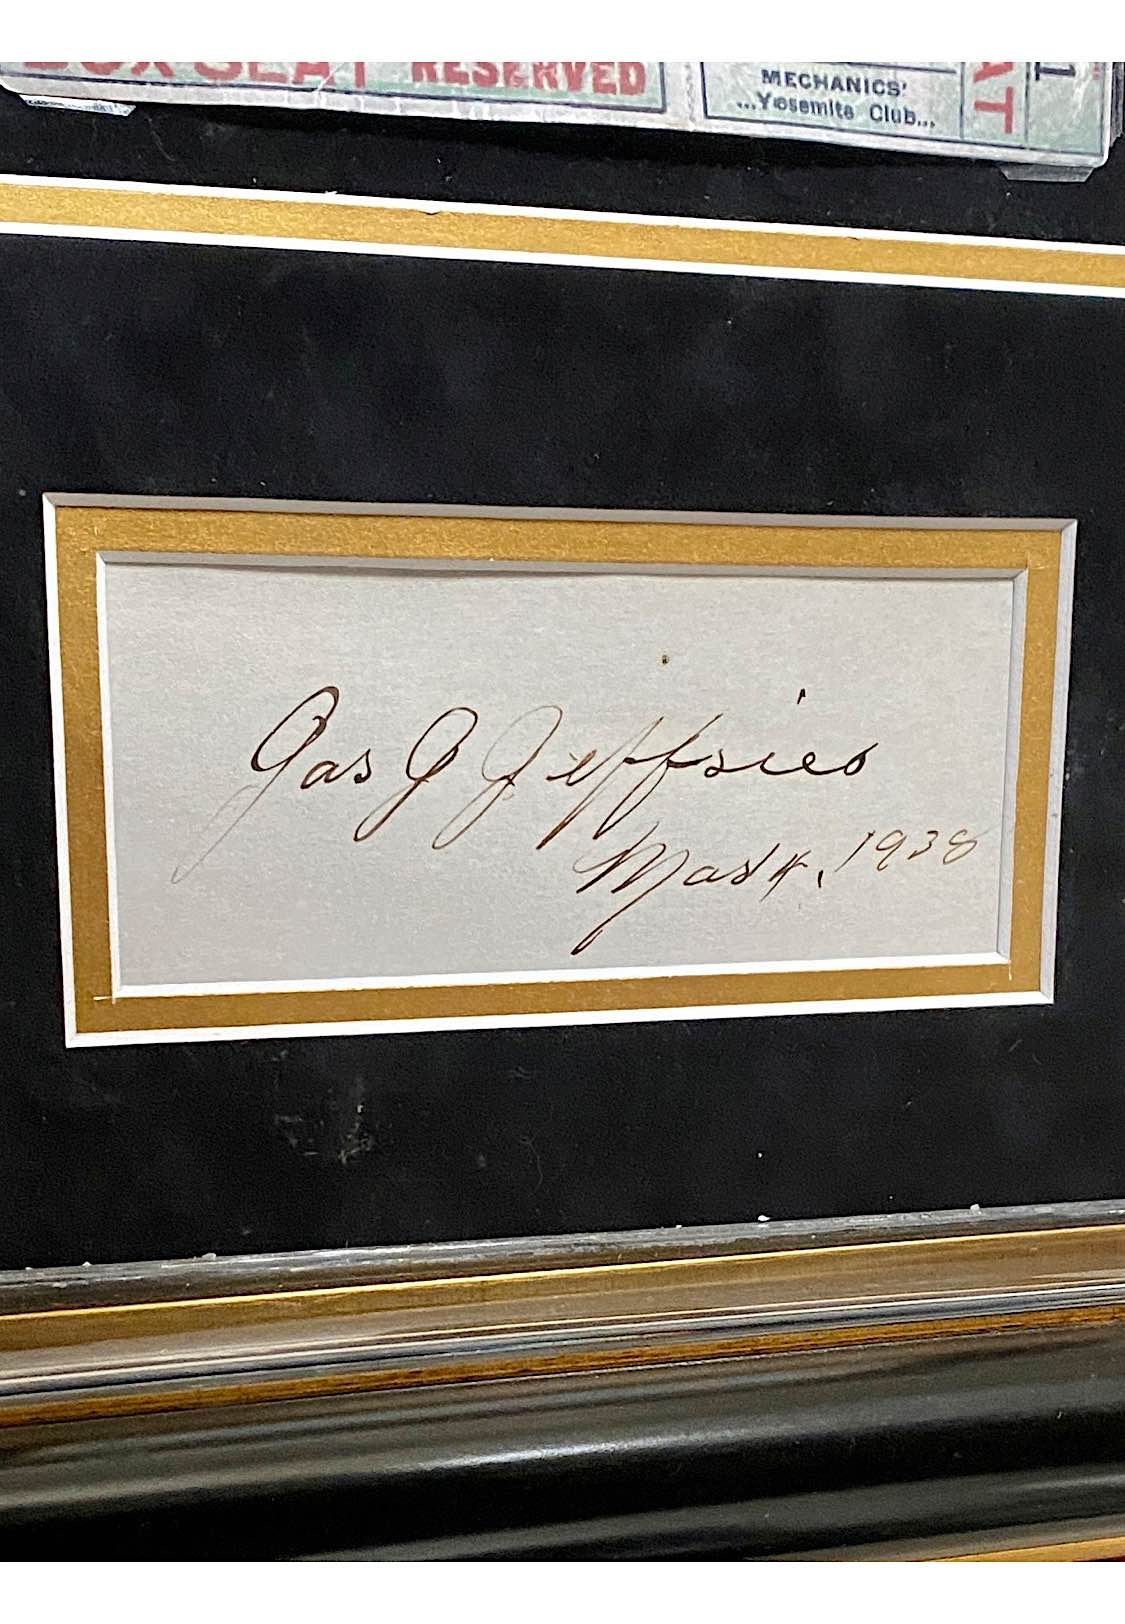 BOX SEAT RESERVED
MECHANICS'
...Yosemite Club...
AT
1
Jas J Jeffries
Mar 4, 1938